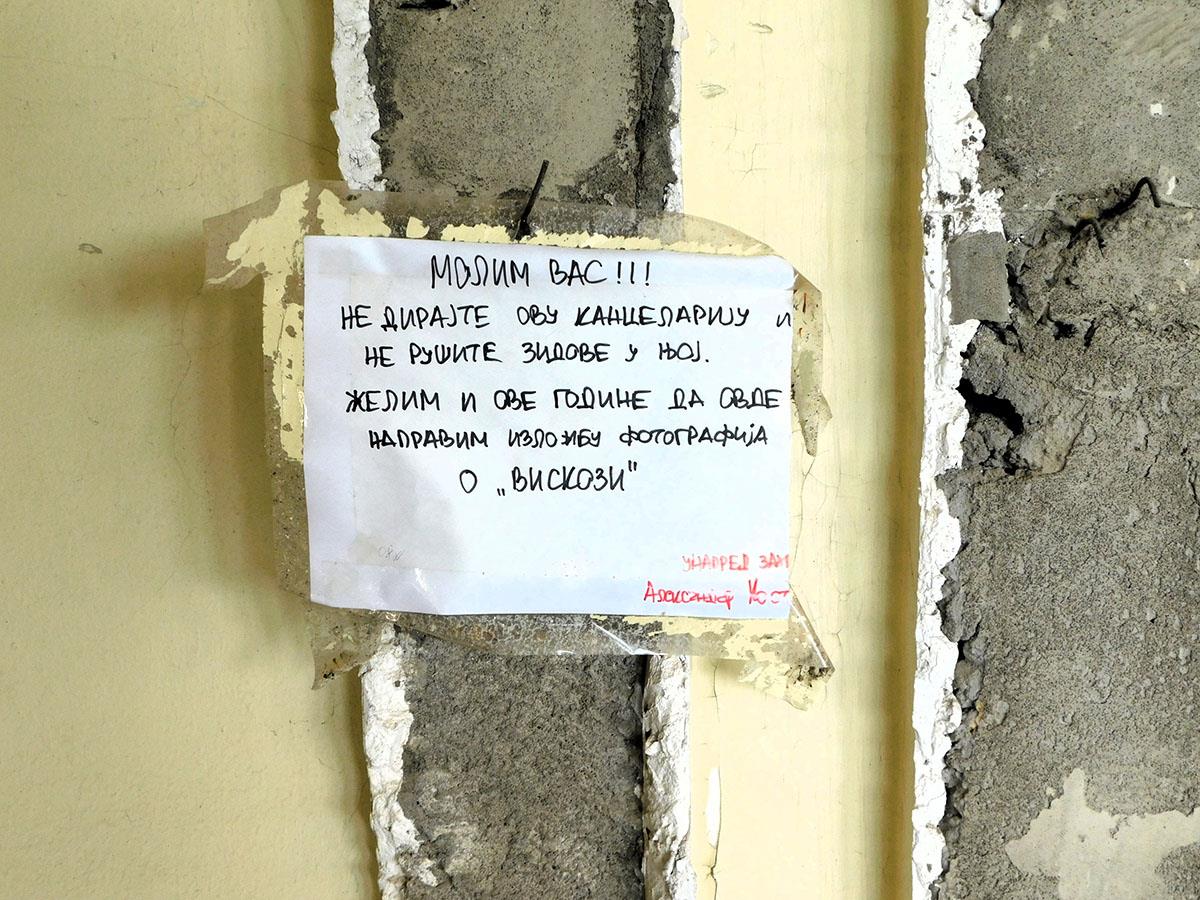 МОЛИМ ВАС!!!
НЕ ДИРАЈТЕ ОВУ КАНЦЕЛАРИЈУ И
НЕ РУШИТЕ ЗИДОВЕ У ЊОЈ.
ЖЕЛИМ И ОВЕ ГОДИНЕ ДА ОВДЕ
НАПРАВИМ ИЗЛОЖБУ ФОТОГРАФИЈА
О „ВИСКОЗИ"
УНАПРЕД ЗАХ
Александар Кост